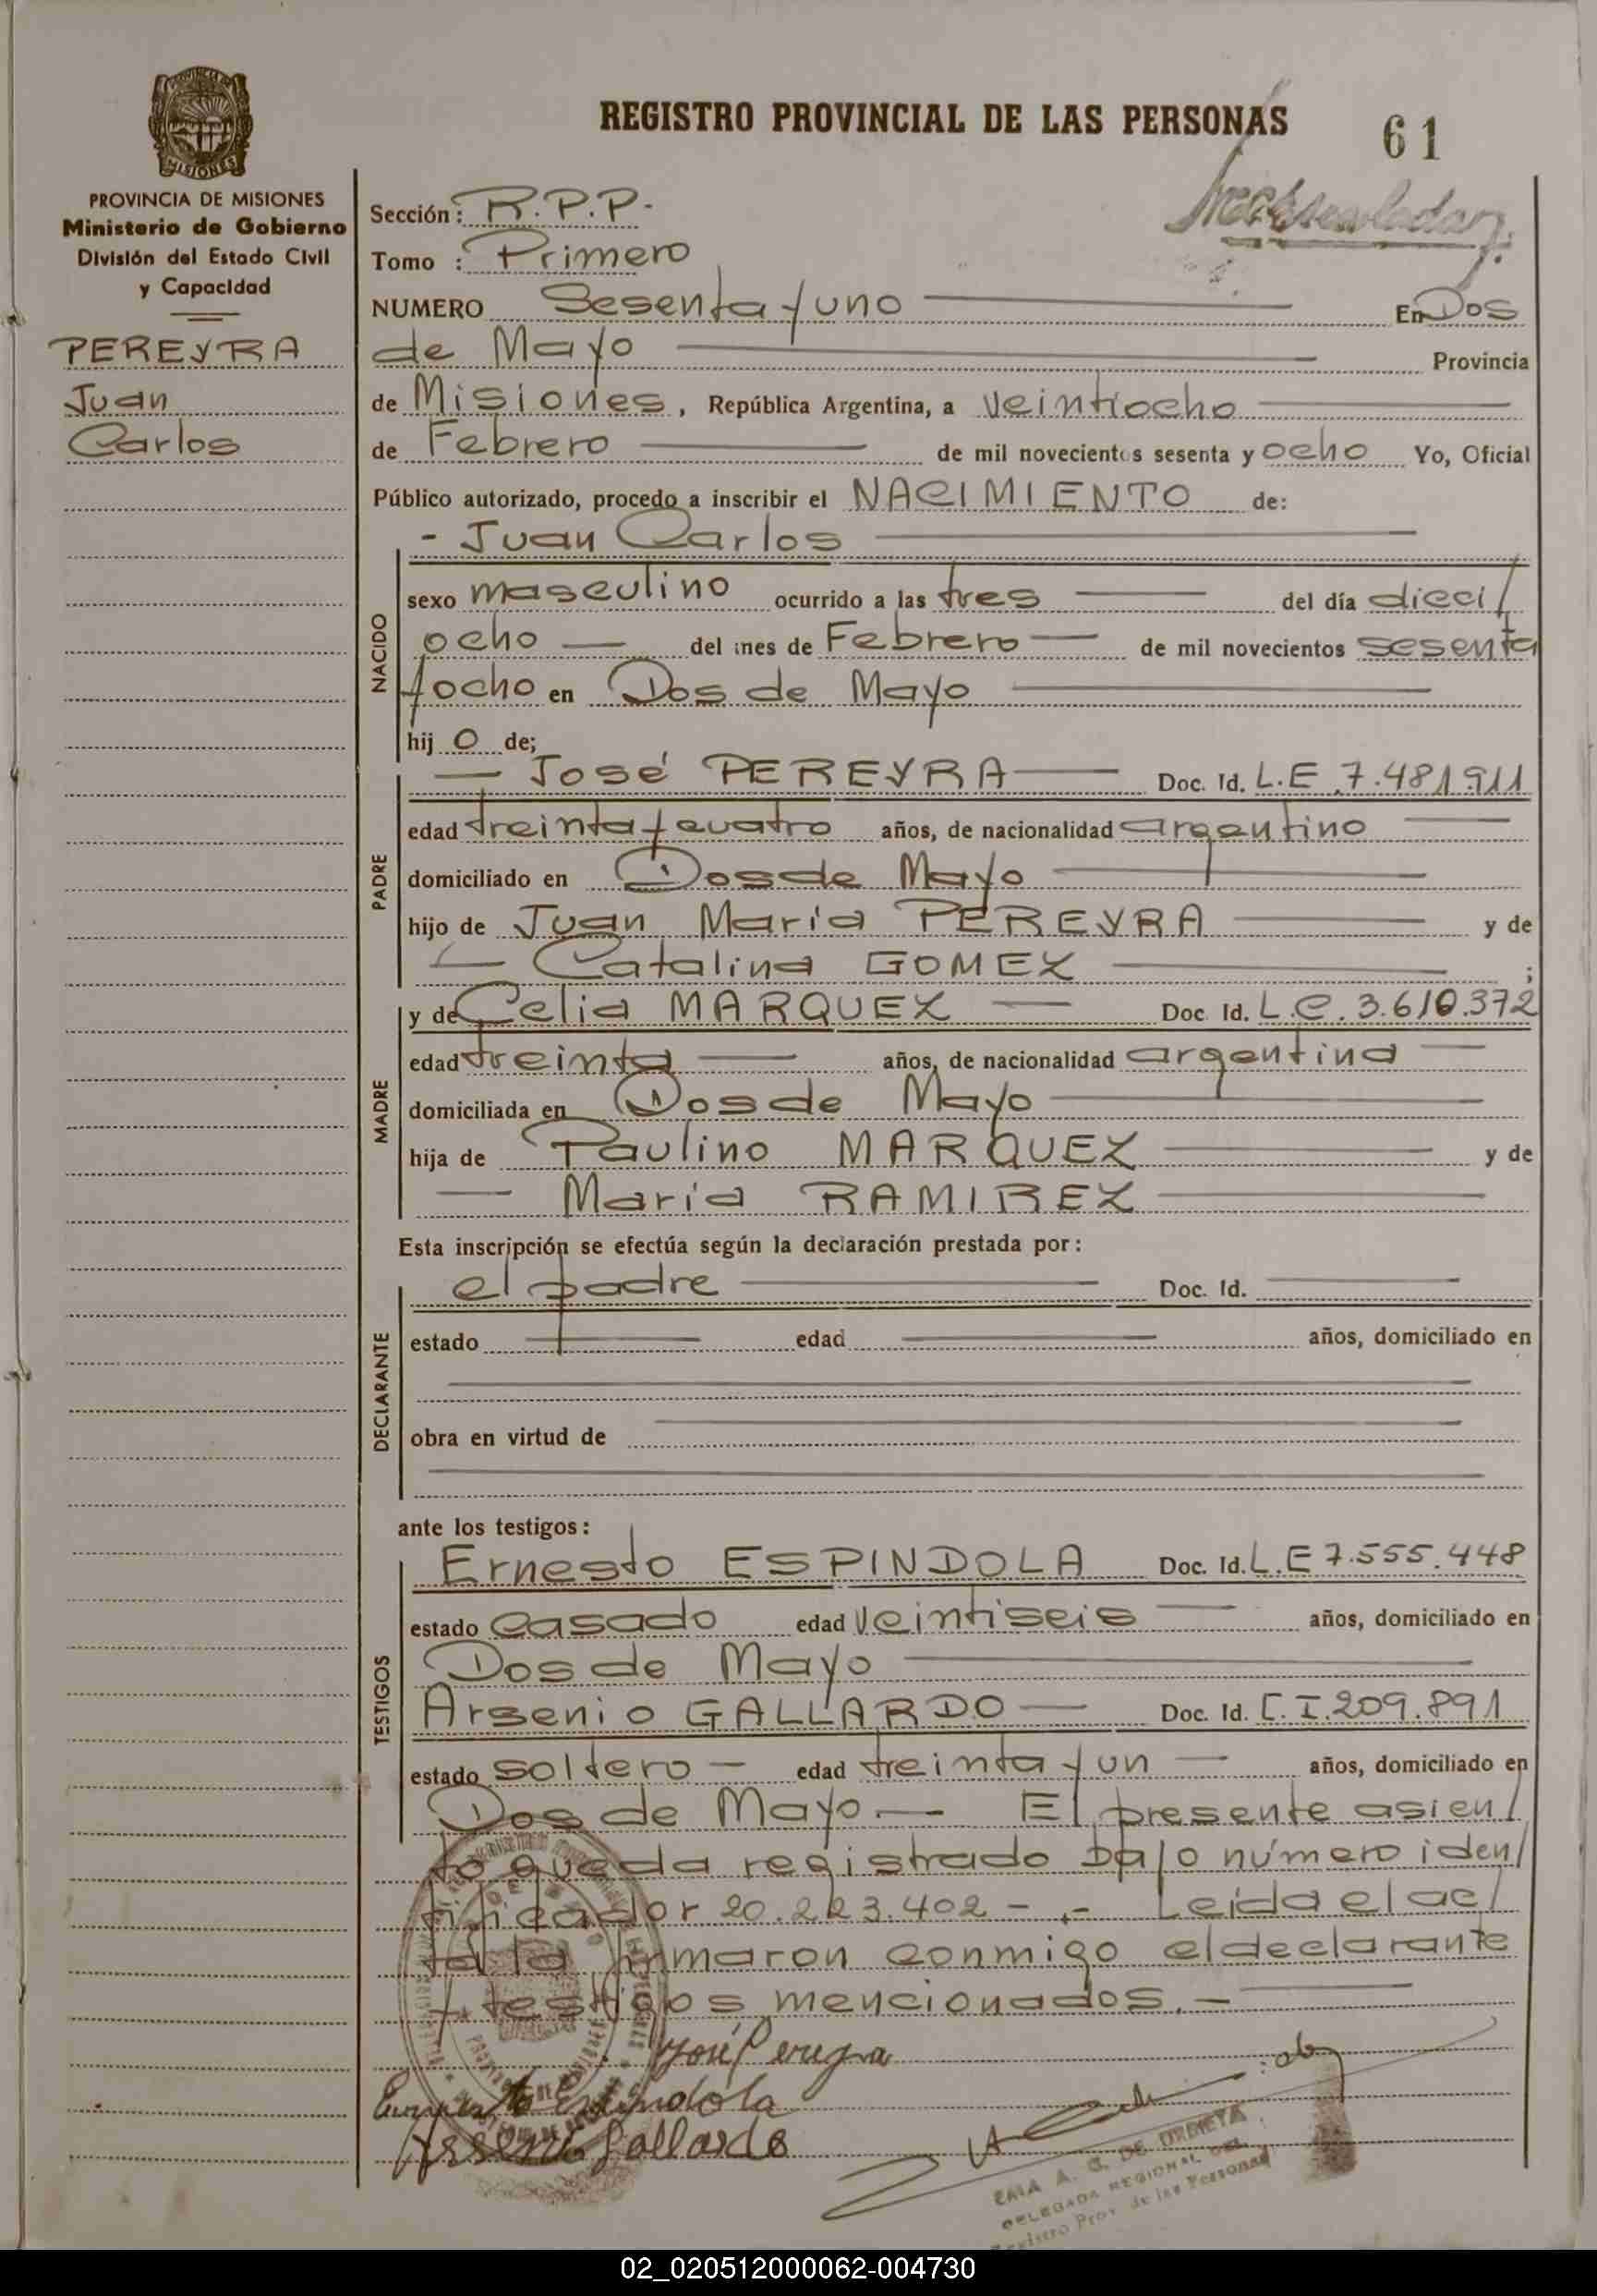 REGISTRO PROVINCIAL DE LAS PERSONAS
61
MISIONES
PROVINCIA DE MISIONES
Ministerio de Gobierno
División del Estado Civil
y Capacidad
PEREYRA
Juan
Carlos
Sección: R.P.P.-
Tomo : Primero
NUMERO Sesenta y uno En Dos
de Mayo Provincia
de Misiones, República Argentina, a veintiocho
de Febrero de mil novecientos sesenta y ocho Yo, Oficial
Público autorizado, procedo a inscribir el NACIMIENTO de:
- Juan Carlos
NACIDO
sexo masculino ocurrido a las tres del día dieci/
ocho del mes de Febrero de mil novecientos sesenta
y ocho en Dos de Mayo
hij o de;
PADRE
José PEREYRA Doc. Id. L.E 7.481.911
edad treinta y cuatro años, de nacionalidad argentino
domiciliado en Dos de Mayo
hijo de Juan María PEREYRA y de
Catalina GOMEZ ;
MADRE
y de Celia MARQUEZ Doc. Id. L.C. 3.610.372
edad treinta años, de nacionalidad argentina
domiciliada en Dos de Mayo
hija de Paulino MARQUEZ y de
María RAMIREZ
Esta inscripción se efectúa según la declaración prestada por:
DECLARANTE
el padre Doc. Id.
estado edad años, domiciliado en
obra en virtud de
ante los testigos:
TESTIGOS
Ernesto ESPINDOLA Doc. Id. L.E 7.555.448
estado casado edad veintiseis años, domiciliado en
Dos de Mayo
Arsenio GALLARDO Doc. Id. C.I. 209.891
estado soltero edad treinta y un años, domiciliado en
Dos de Mayo.- El presente asien/
to queda registrado bajo número iden/
tificador 20.223.402 -.- Leída el ac/
ta la firmaron conmigo el declarante
y testigos mencionados.-
José Pereyra
Ernesto Espindola
Arsenio Gallardo
A. G. DE URBIETA
DELEGADA REGIONAL DEL
Registro Prov. de las Personas
02_020512000062-004730